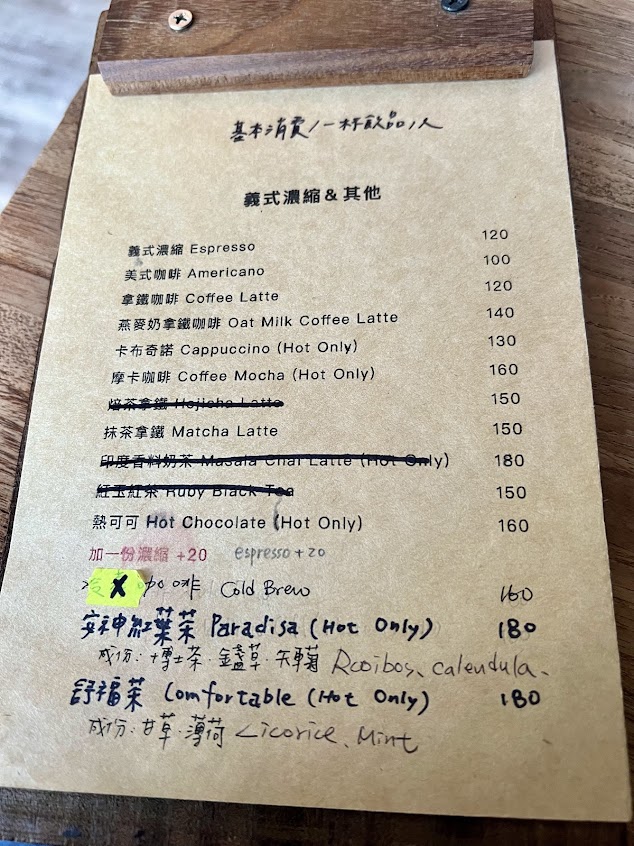 基本消費/一杯飲品/人
義式濃縮&其他
義式濃縮 Espresso 120
美式咖啡 Americano 100
拿鐵咖啡 Coffee Latte 120
燕麥奶拿鐵咖啡 Oat Milk Coffee Latte 140
卡布奇諾 Cappuccino (Hot Only) 130
摩卡咖啡 Coffee Mocha (Hot Only) 160
焙茶拿鐵 Hojicha Latte 150
抹茶拿鐵 Matcha Latte 150
印度香料奶茶 Masala Chai Latte (Hot Only) 180
紅玉紅茶 Ruby Black Tea 150
熱可可 Hot Chocolate (Hot Only) 160
加一份濃縮 +20 espresso +20
X 咖啡 Cold Brew 160
安神紅葉茶 Paradisa (Hot Only) 180
成份:博士茶·金盞草·矢車菊 Rooibos、calendula、
舒福茶 Comfortable (Hot Only) 180
成份:甘草·薄荷 Licorice、Mint